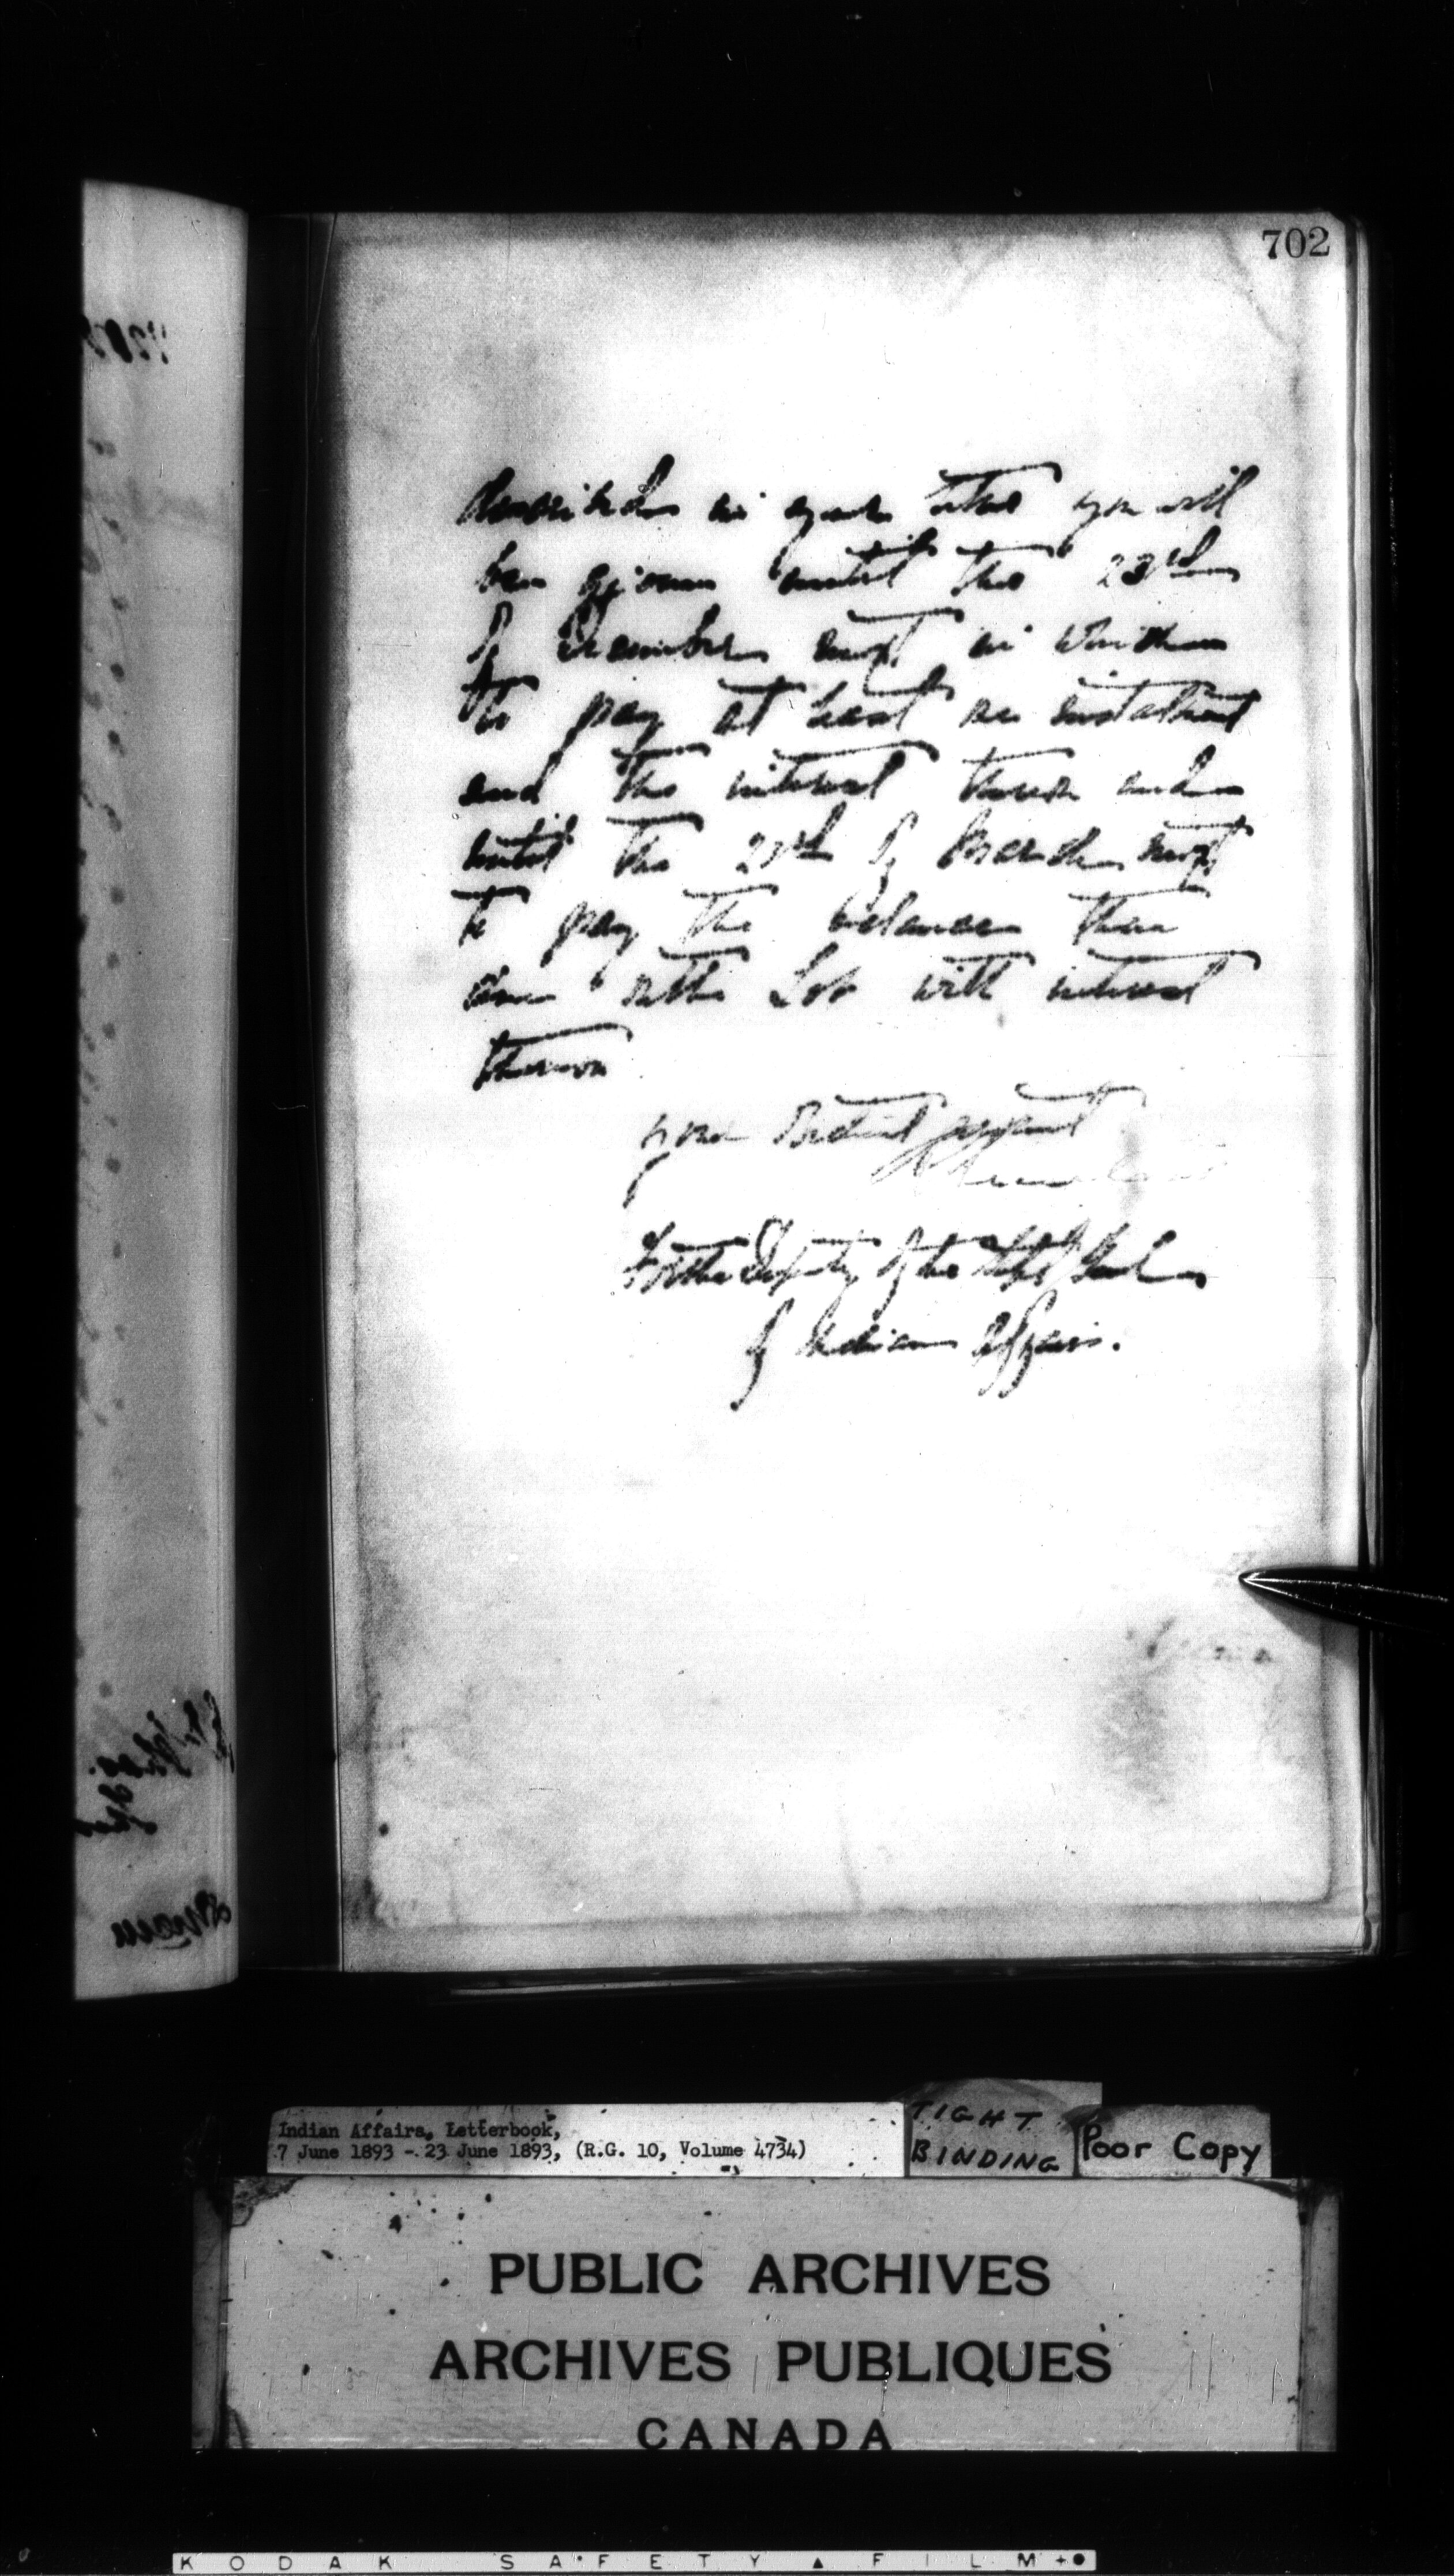 702
you will
be given until the 23rd
of December next in which
to pay at least one instalment
and the interest thereon and
until the 23rd of March next
to pay the balance then
due on the Lot with interest
thereon
Your obedient servant
For the Deputy of the Supt Genl
of Indian Affairs.
Indian Affairs, Letterbook,
7 June 1893 - 23 June 1893, (R.G. 10, Volume 4734)
TIGHT
BINDING
Poor Copy
PUBLIC ARCHIVES
ARCHIVES PUBLIQUES
CANADA
KODAK SAFETY FILM